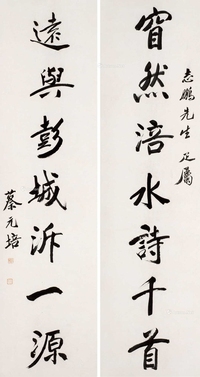 志鵬先生正屬
窅然涪水詩千首
遠與彭城泝一源
蔡元培